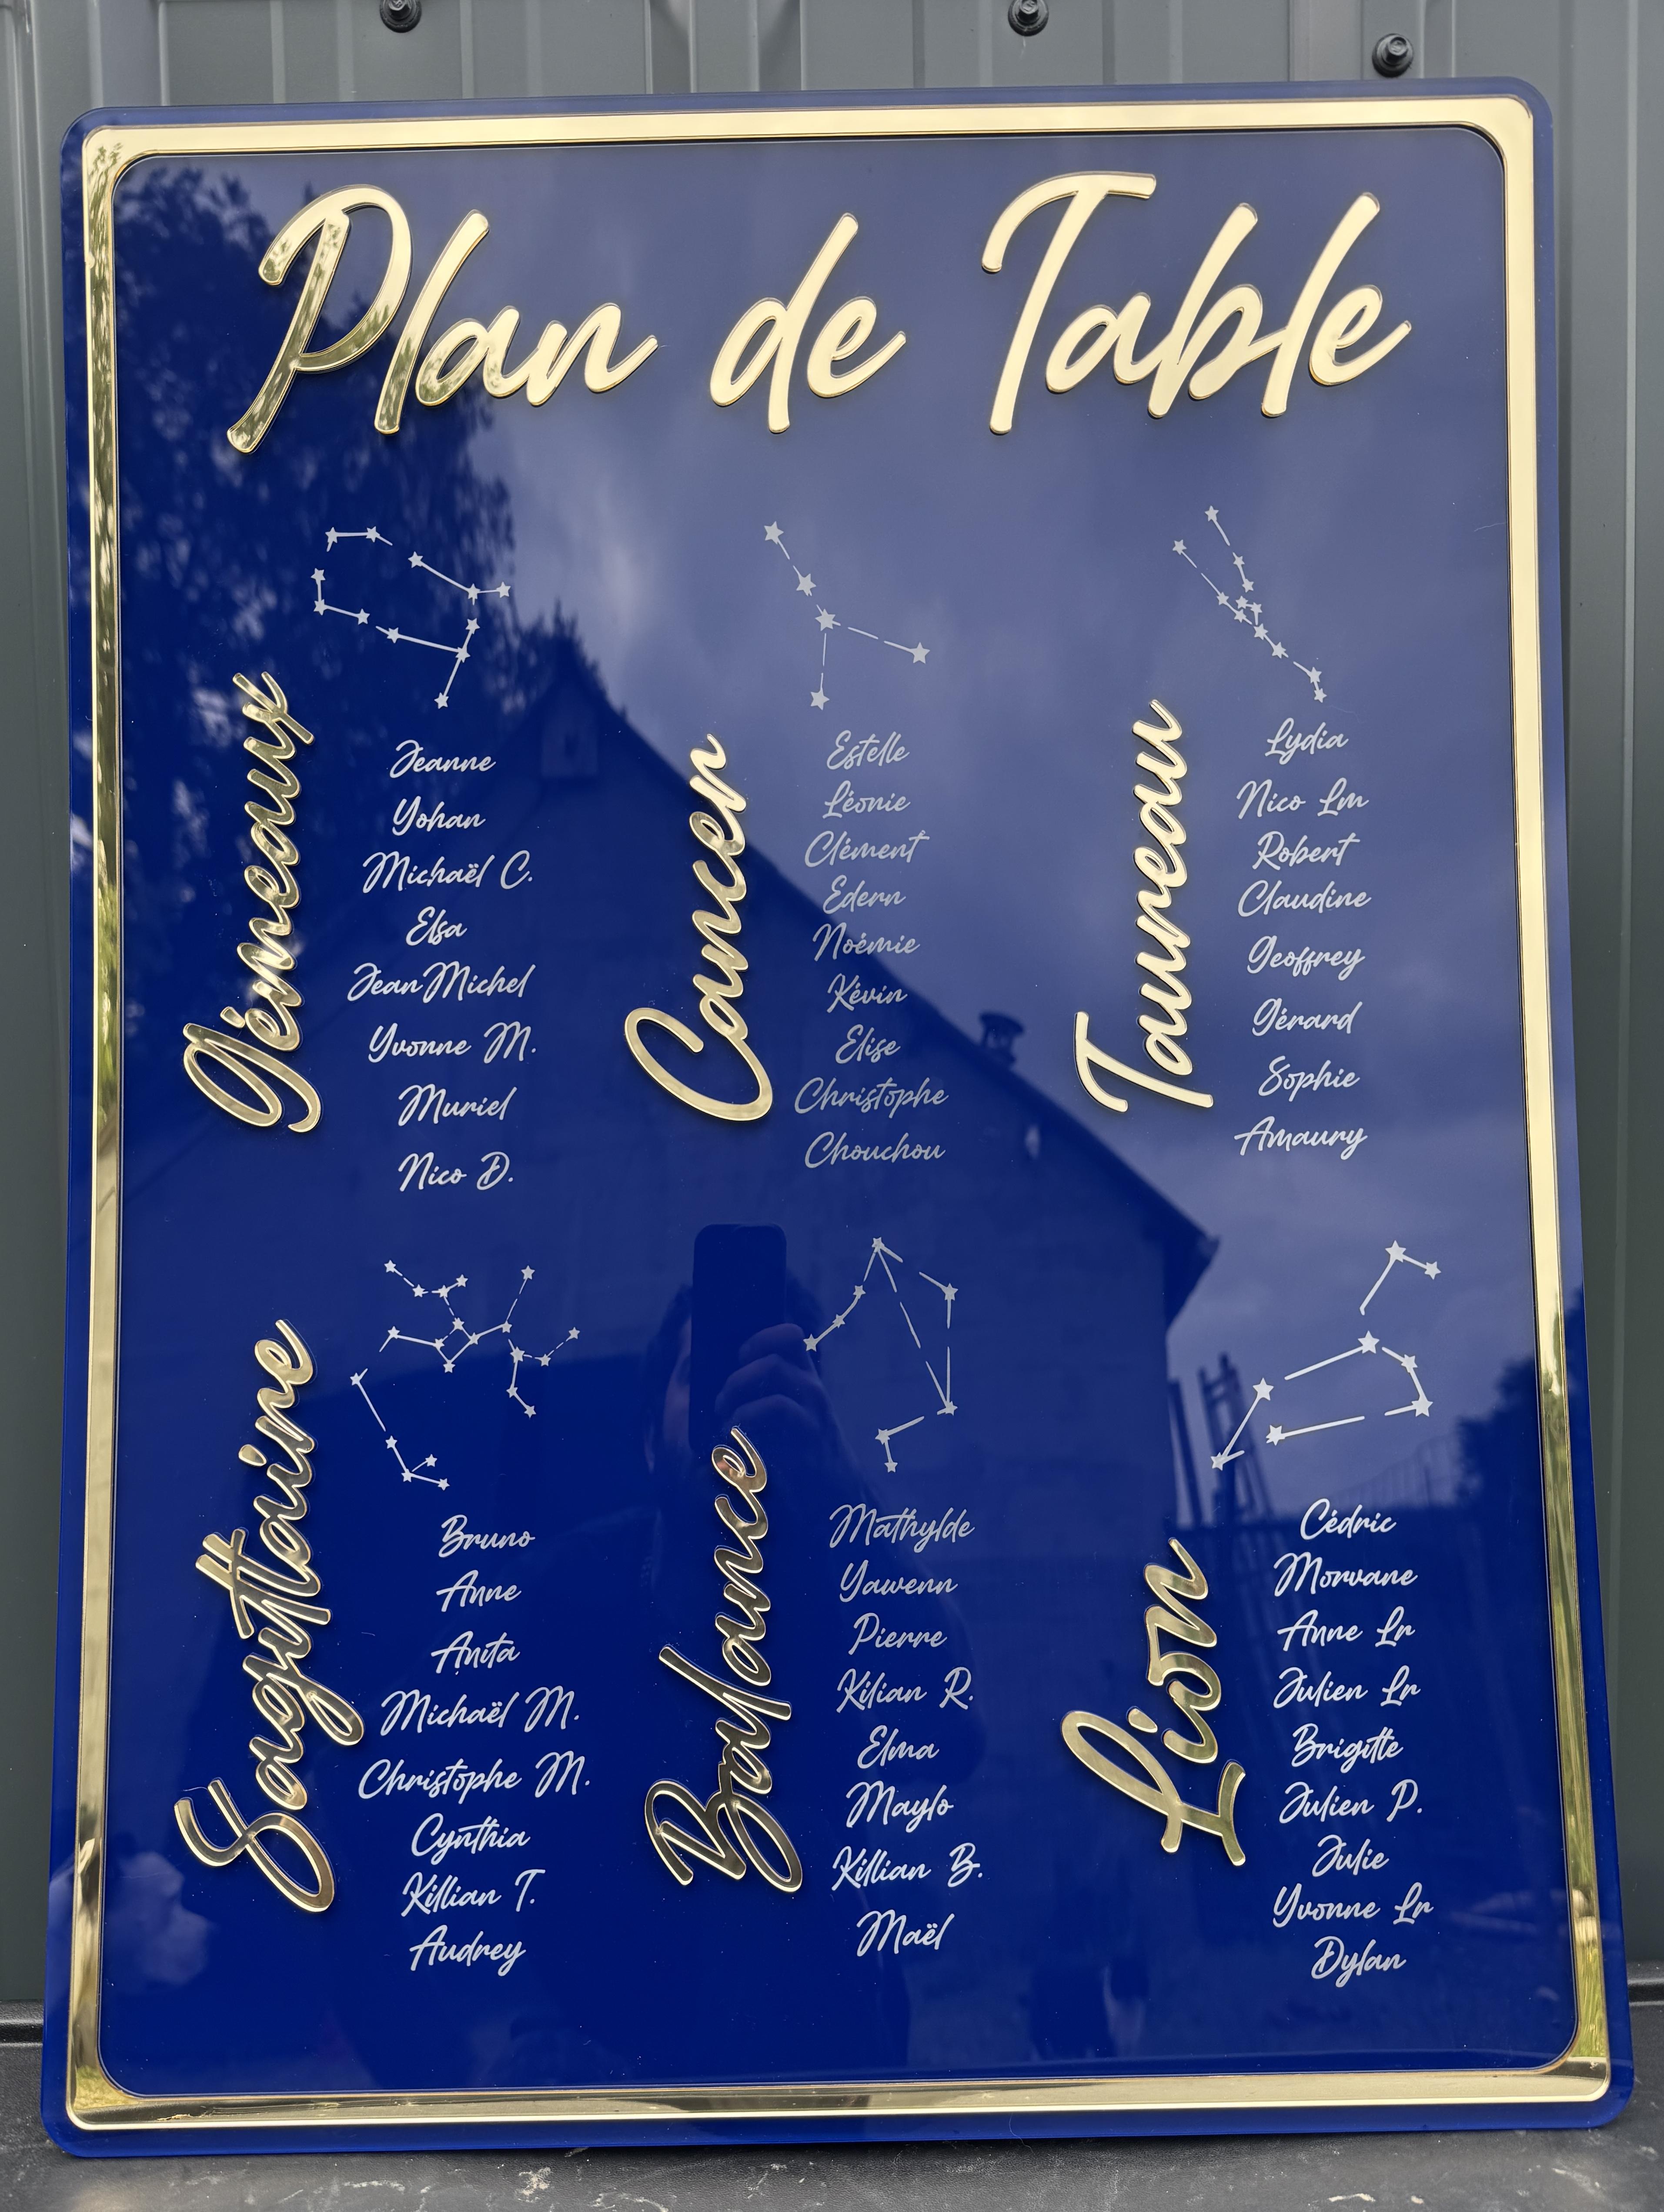 Plan de Table
Gémeaux
Jeanne
Yohan
Michaël C.
Elsa
Jean Michel
Yvonne M.
Muriel
Nico D.
Cancer
Estelle
Léonie
Clément
Edern
Noémie
Kévin
Elise
Christophe
Chouchou
Taureau
Lydia
Nico Lm
Robert
Claudine
Geoffrey
Gérard
Sophie
Amaury
Sagittaire
Bruno
Anne
Anita
Michaël M.
Christophe M.
Cynthia
Killian T.
Audrey
Balance
Mathylde
Yawenn
Pierre
Kilian R.
Elma
Maylo
Killian B.
Maël
Lion
Cédric
Morvane
Anne Lr
Julien Lr
Brigitte
Julien P.
Julie
Yvonne Lr
Dylan